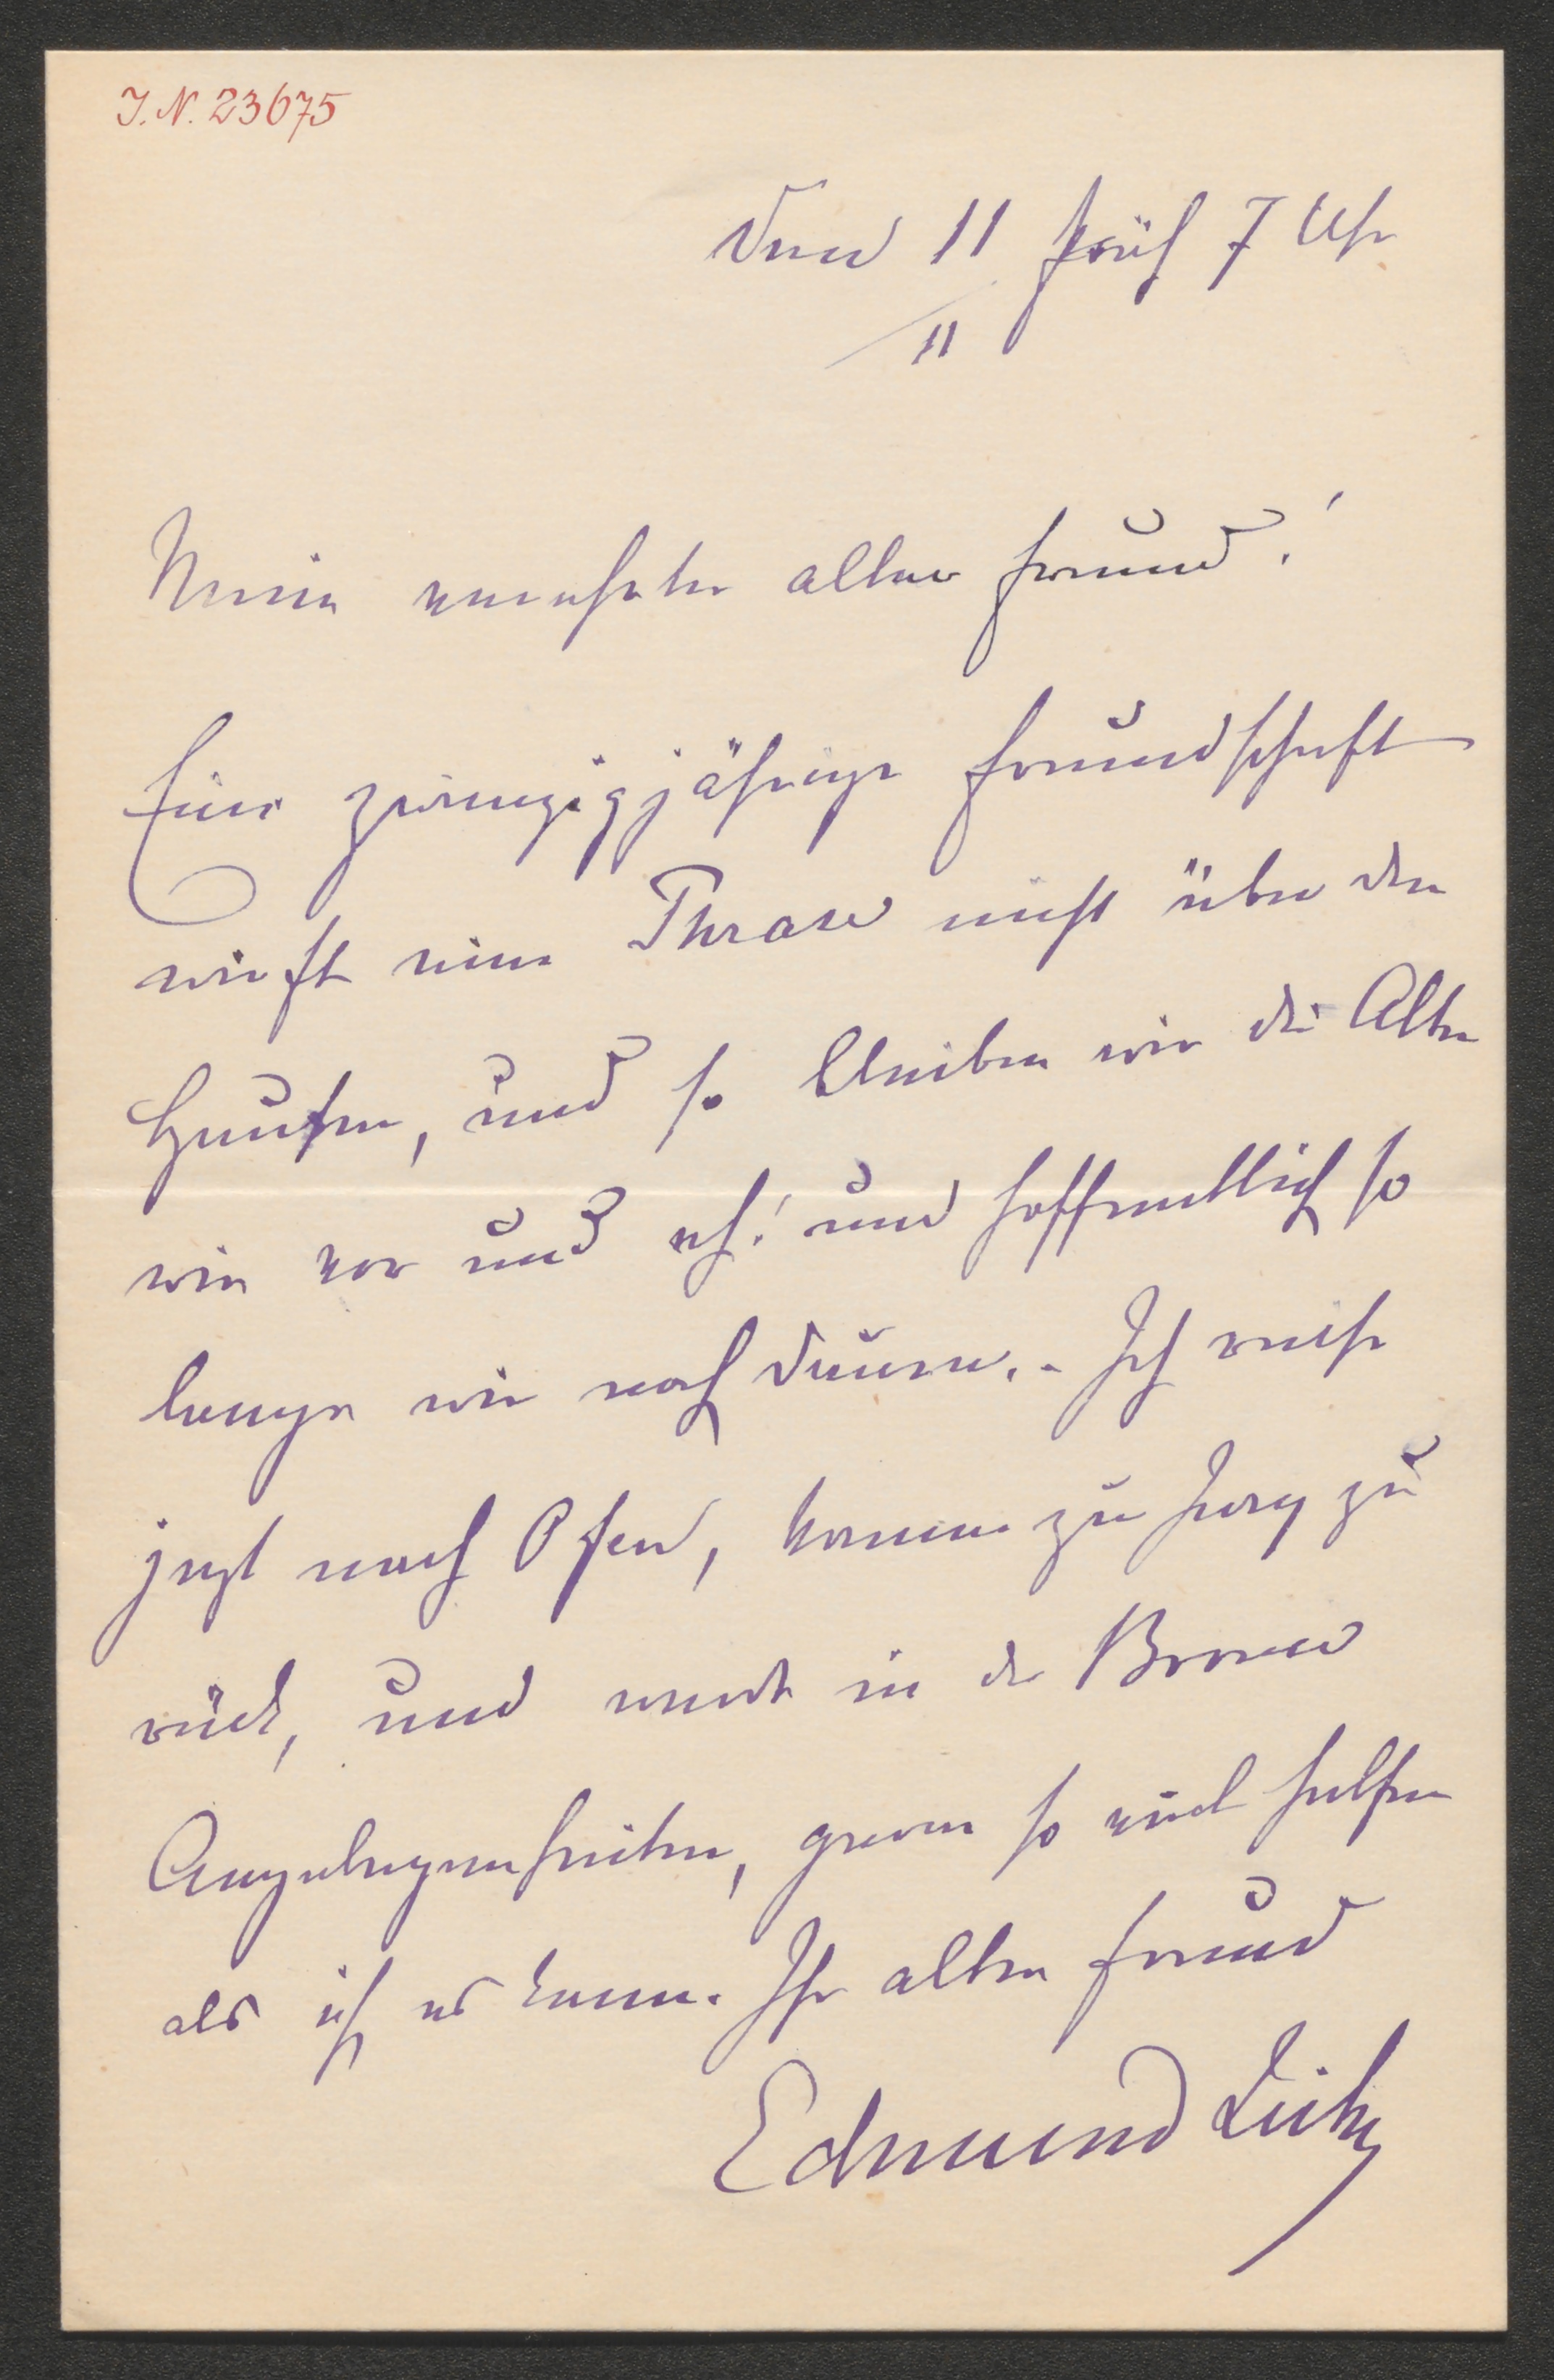 I. N. 23675
Den 11 früh 7 Uhr
/11
Mein verehrter alter Freund!
Eine zwanzigjährige Freundschaft
wirft eine Phrase nicht über den
Haufen, und so bleiben wir die Alten
wie vor und eh! und hoffentlich so
lange wir noch dauern. – Ich reise
jezt nach Ofen, komme zu zu
rück, und werde in der
Angelegenheiten, gerne so viel helfen
als ich es kann. Ihr alter Freund
Edmund